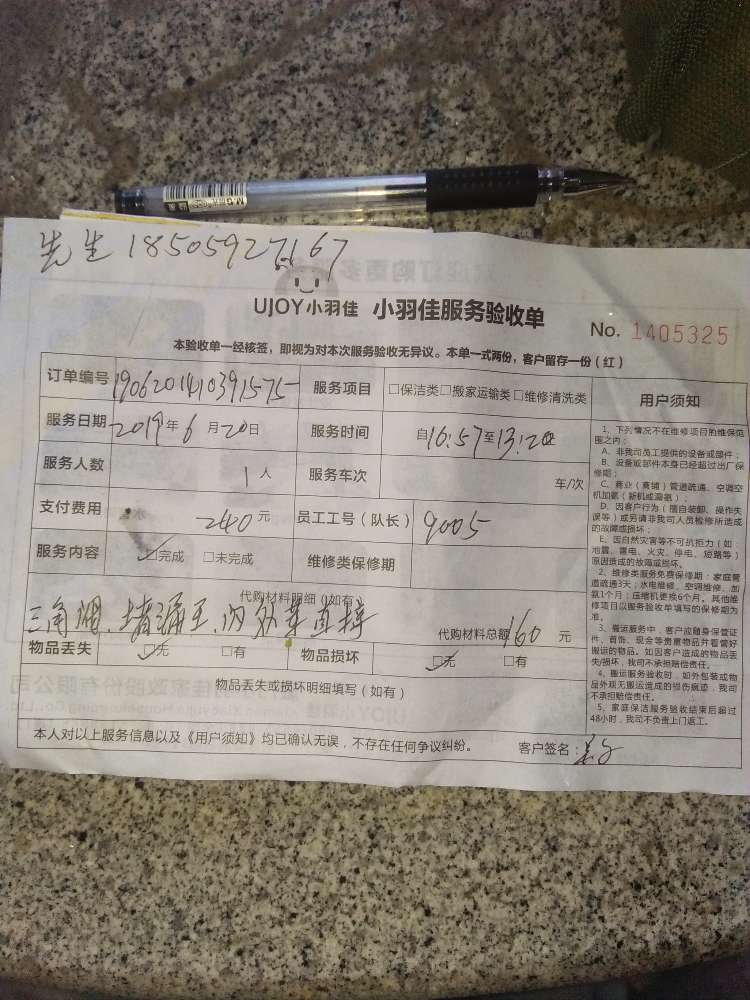 先生 18505927167
UJOY小羽佳 小羽佳服务验收单
No. 1405325
本验收单一经核签，即视为对本次服务验收无异议。本单一式两份，客户留存一份（红）
订单编号 1906201410391575 服务项目 □保洁类□搬家运输类□维修清洗类
服务日期 2019年6月20日 服务时间 自16:57至13:20
服务人数 1人 服务车次 车/次
支付费用 240元 员工工号（队长） 9005
服务内容 ☑完成 □未完成 维修类保修期
代购材料明细（如有）
三角阀、堵漏王、内外苹直接
代购材料总额 160 元
物品丢失 ☑无 □有 物品损坏 ☑无 □有
物品丢失或损坏明细填写（如有）
本人对以上服务信息以及《用户须知》均已确认无误，不存在任何争议纠纷。 客户签名：
用户须知
1、下列情况不在维修项目的维保范
围之内：
A、非我司员工提供的设备或部件；
B、设备或部件本身已经超过出厂保
修期；
C、商业（商铺）管道疏通、空调空
机加氨（新机或漏氨）；
D、因客户行为（擅自装卸、操作失
误等）或另请非我司人员检修所造成
的故障或损坏；
E、因自然灾害等不可抗拒力（如
地震、雷电、火灾、停电、短路等）
原因造成的故障或损坏。
2、维修类服务免费保修期：家庭管
道疏通3天；水电维修、空调维修、加
氨1个月；压缩机更换6个月。其他维
修项目以服务验收单填写的保修期为
准。
3、搬运服务中，客户应随身保管证
件、首饰、现金等贵重物品并看管好
搬运的物品。如因客户造成的物品丢
失/损坏，我司不承担赔偿责任。
4、搬运服务验收时，如外包装或物
品外观无搬运造成的损伤痕迹，我司
不承担赔偿责任。
5、家庭保洁服务验收结束后超过
48小时，我司不负责上门返工。